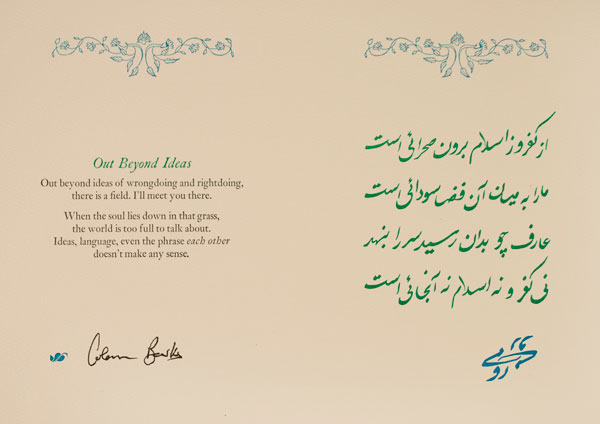 Out Beyond Ideas
Out beyond ideas of wrongdoing and rightdoing,
there is a field. I'll meet you there.
When the soul lies down in that grass,
the world is too full to talk about.
Ideas, language, even the phrase each other
doesn't make any sense.
Coleman Barks
از کفر و ز اسلام برون صحرائی است
ما را به میان آن فضا سودائی است
عارف چو بدان رسید سر را بنهد
نی کفر و نه اسلام نه آنجائی است